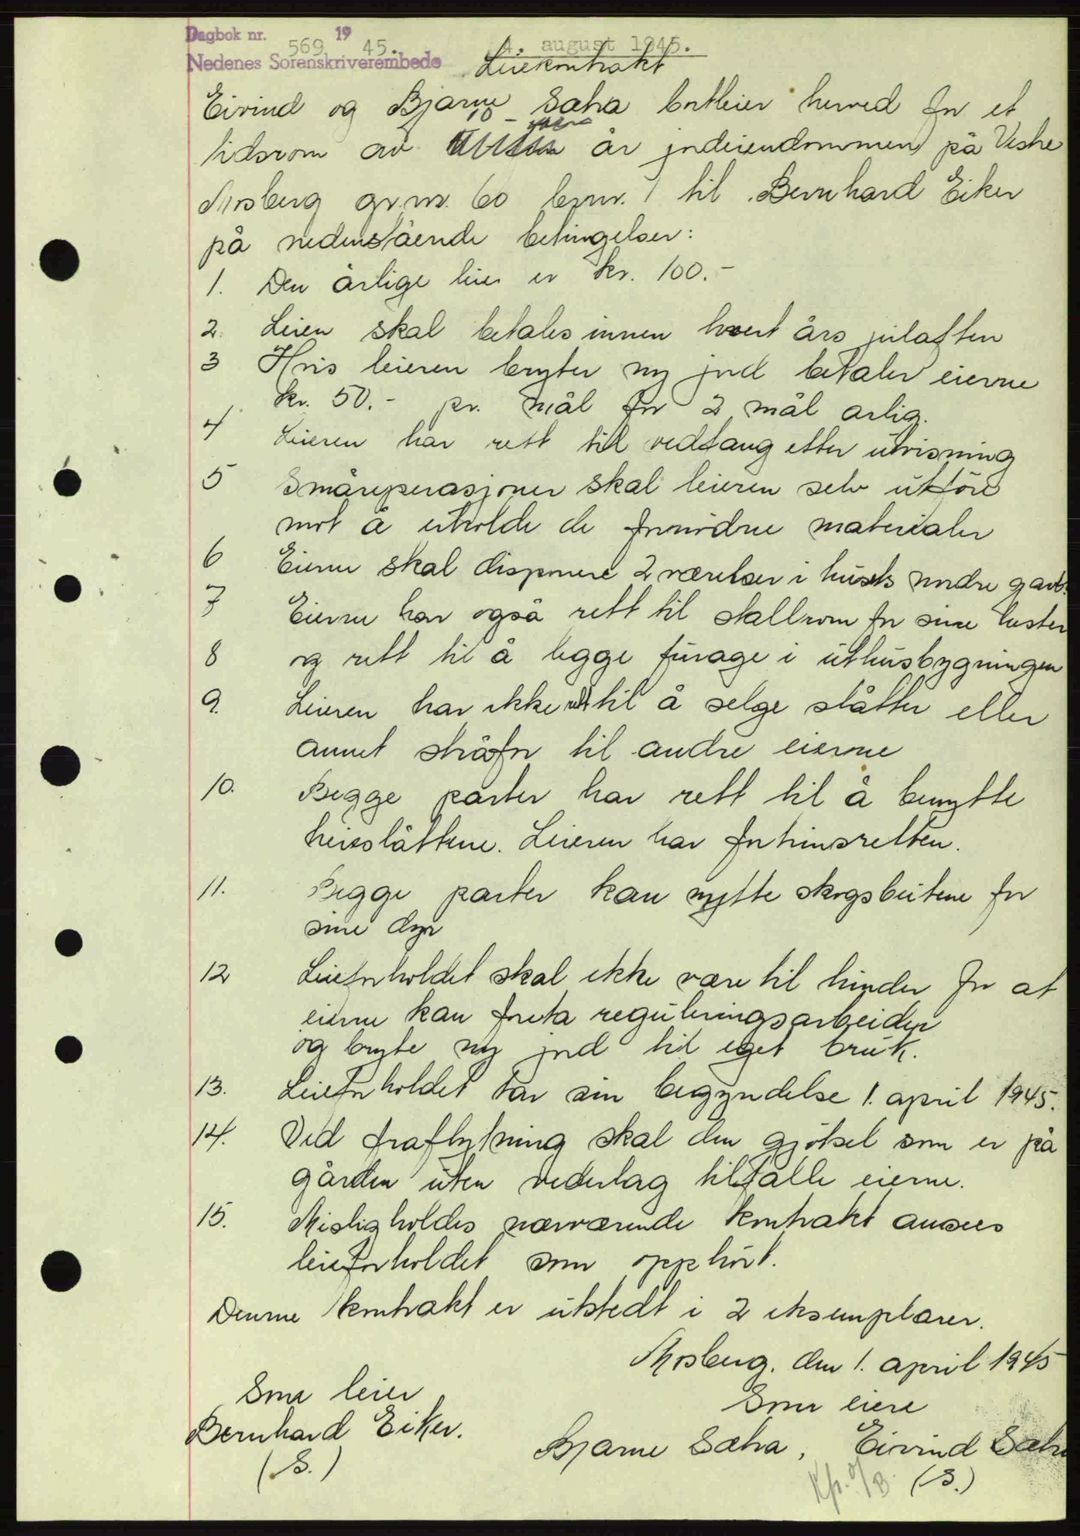 Dagbok nr. 569 1945. 4. august 1945.
Nedenes Sorenskriverembede
Leiekontrakt
Eivind og Bjarne Sætra bortleier herved for et
tidsrom av 10 - år jordeiendommen på Vestre
Mosberg gr.nr. 60 br.nr. 1 til Bernhard Eiker
på nedenstående betingelser:
1. Den årlige leie er kr. 100.-
2. Leien skal betales innen hvert års julaften
3 Hvis leieren bryter ny jord betaler eierne
kr. 50.- pr. mål for 2 mål årlig.
4 Leieren har rett til vedfang etter utvisning
5 Småreperasjoner skal leieren selv utföre
mot å erholde de fornödne materialer
6 Eierne skal disponere 2 værelser i husets nordre gavl.
7 Eierne har også rett til stallrom for sine hester
8 og rett til å legge furage i uthusbygningen
9. Leieren har ikke rett til å selge slåtter eller
annet stråfor til andre eierne
10. Begge parter har rett til å benytte
heieslåttene. Leieren har fortrinsretten.
11. Begge parter kan nytte skogsbeitene for
sine dyr
12 Leieforholdet skal ikke være til hinder for at
eierne kan foreta reguleringsarbeider
og bryte ny jord til eget bruk.
13. Leieforholdet tar sin begynndelse 1. april 1945.
14. Ved fraflytning skal den gjödsel som er på
gården uten vederlag tilfalle eierne.
15. Misligholdes nærværende kontrakt ansees
leieforholdet som opphört.
Denne kontrakt er utstedt i 2 eksemplarer.
Mosberg, den 1. april 1945
Som leier
Som eiere
Bernhard Eiker.
Bjarne Sætra, Eivind Sætra
(S.)
(S.)